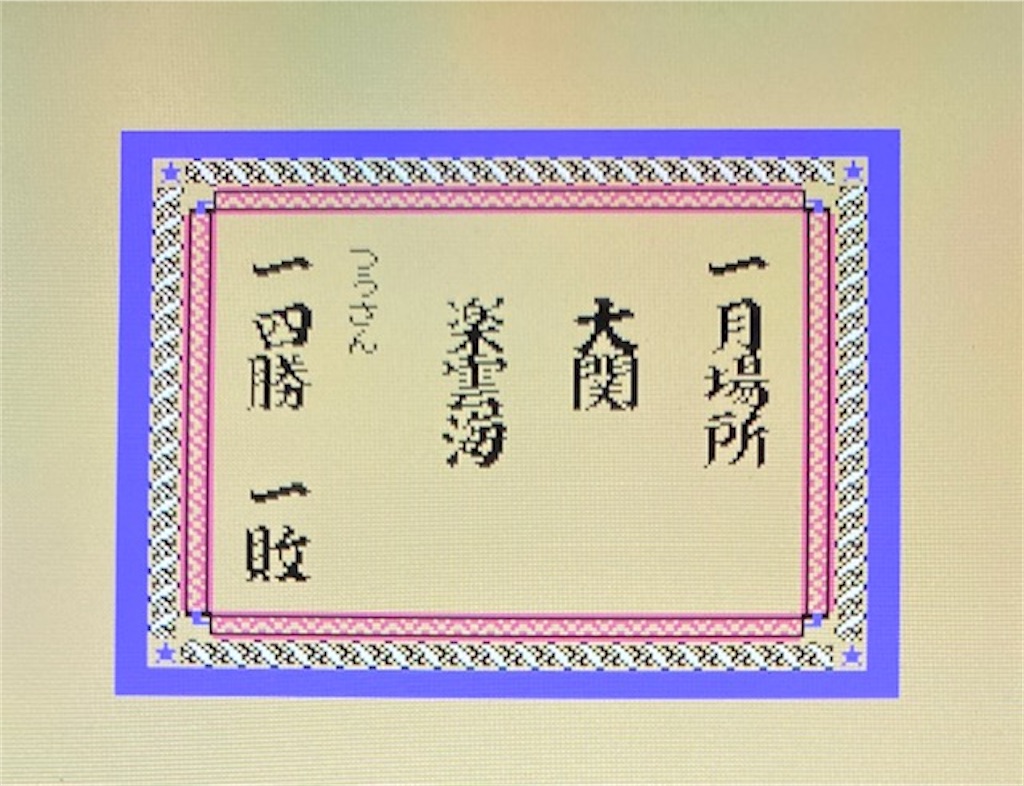 一月場所
大関
楽雲海
つうさん
一四勝 一敗